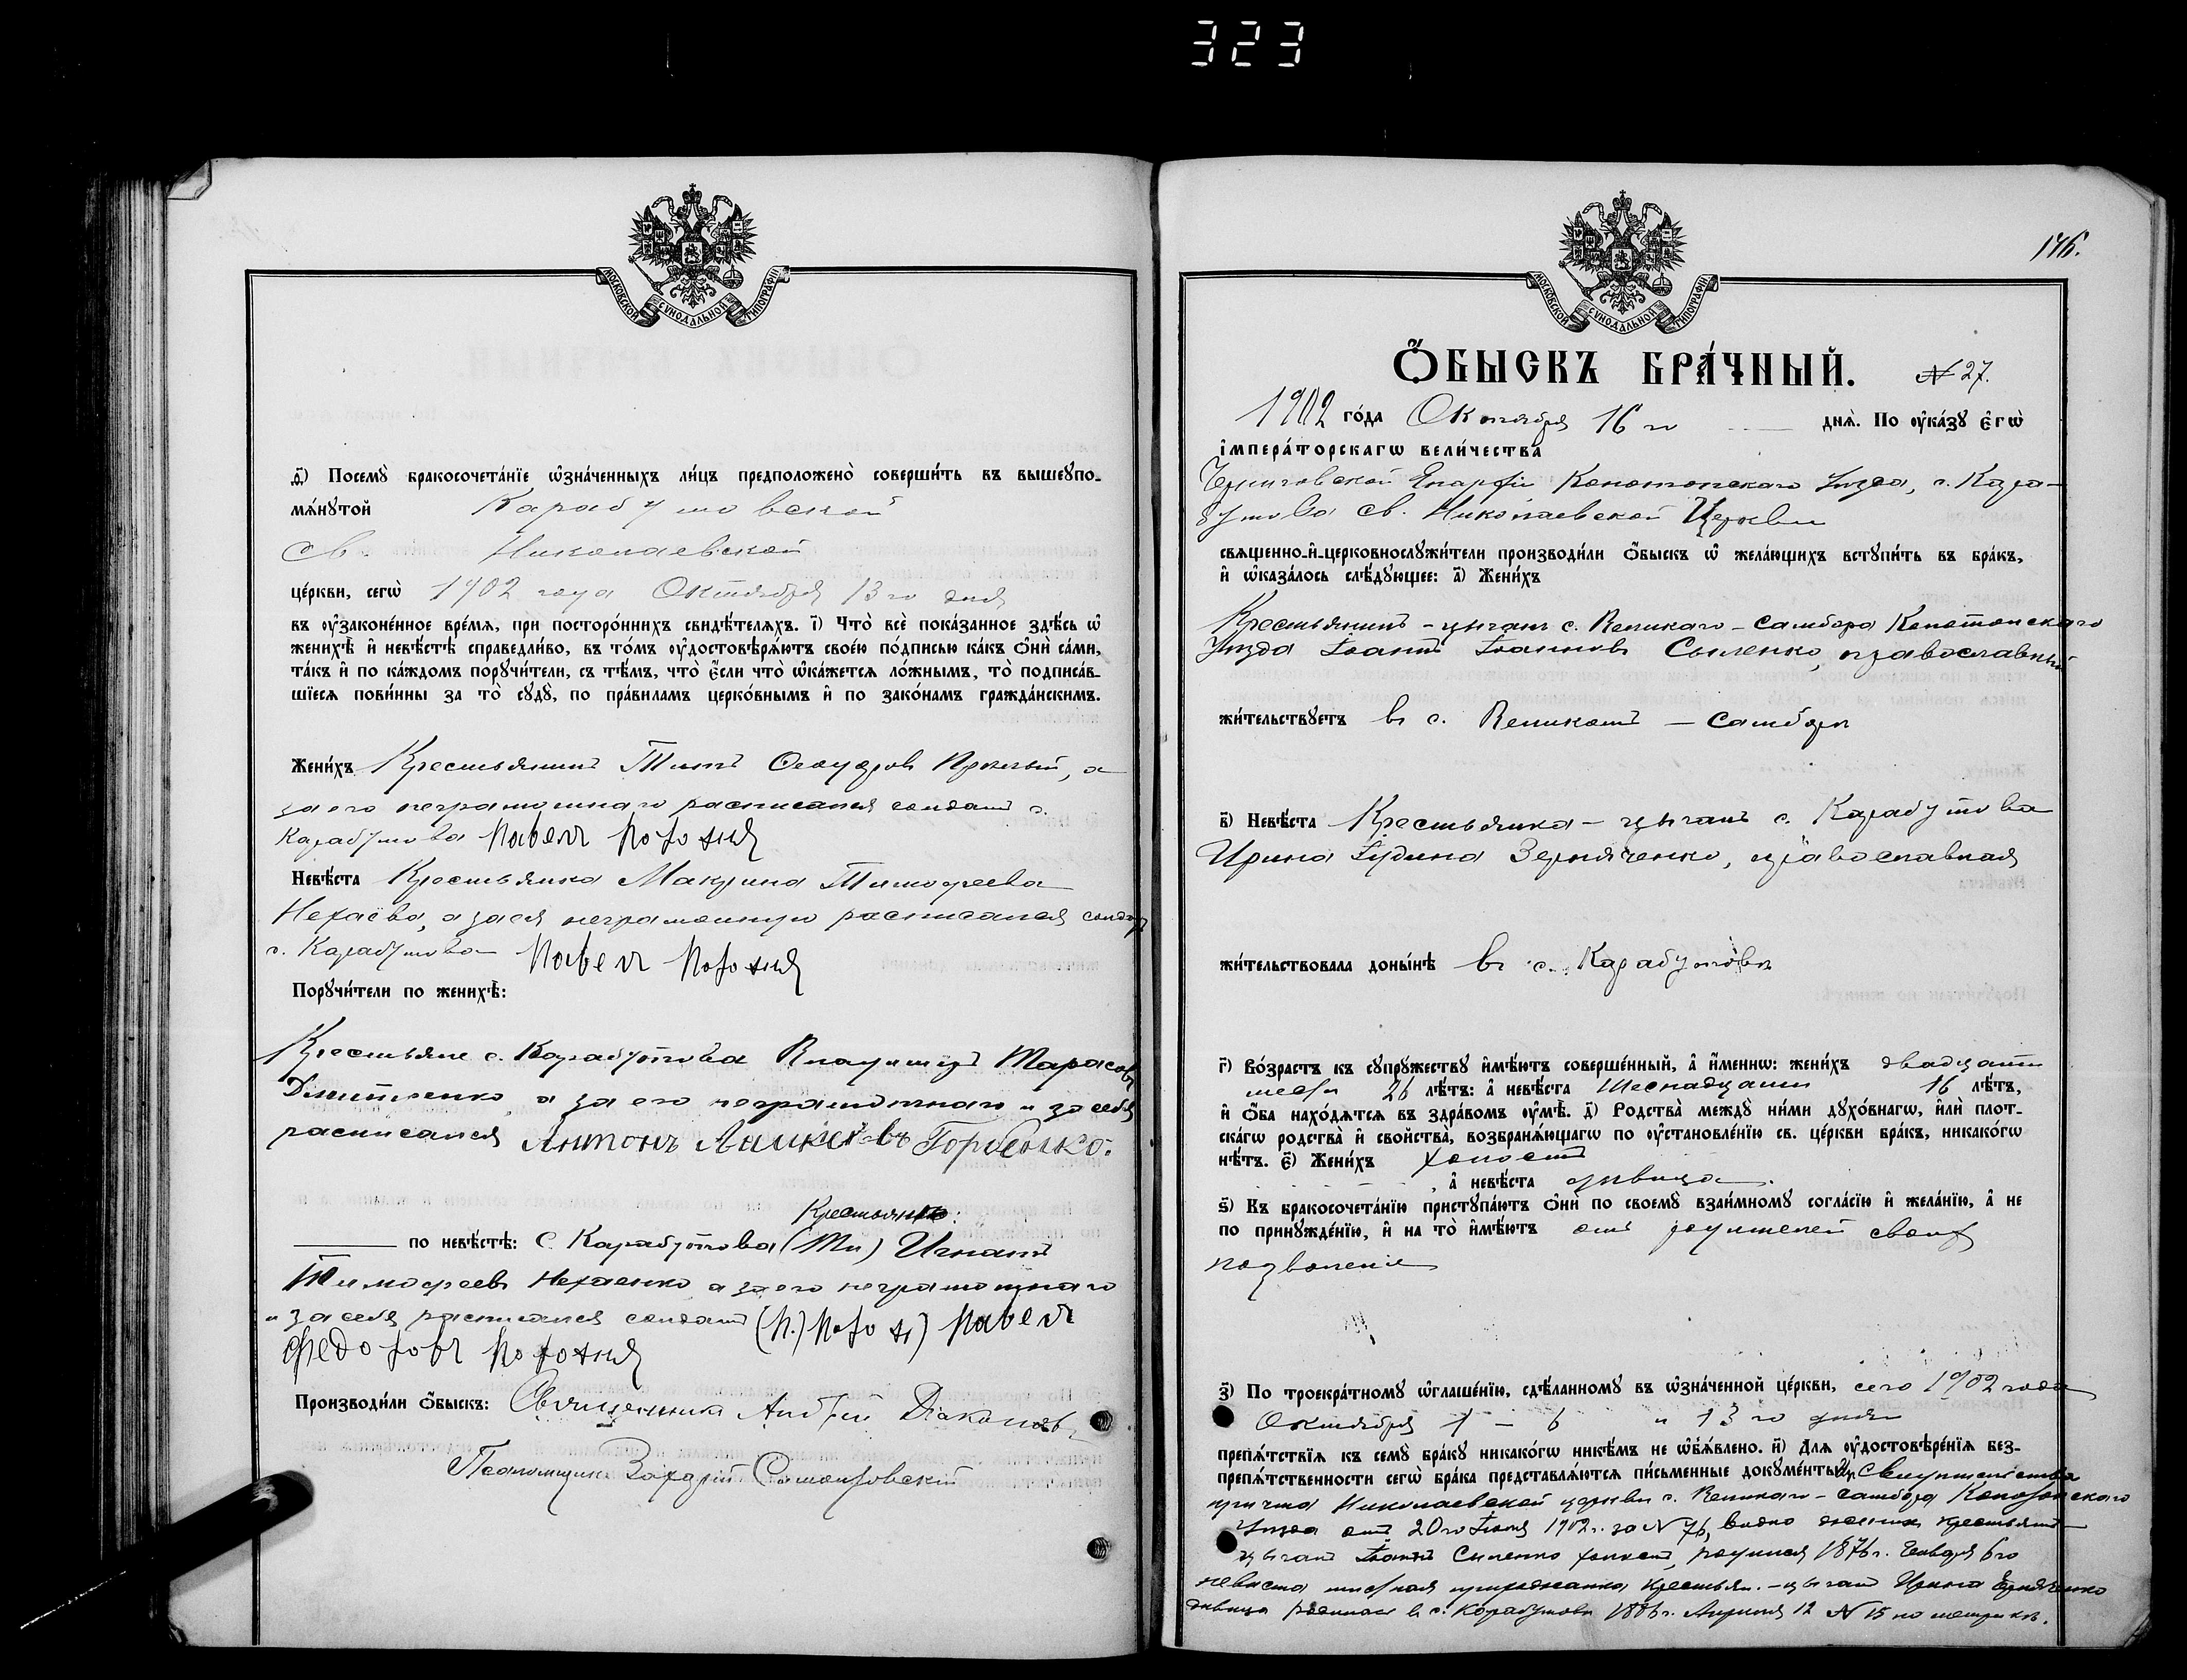 323
МОСКОВСКОЙ СУНОДАЛЬНОЙ ТИПОГРАФІИ
д҃і) Посемꙋ̀ бракосочета́нїе ѡ҆зна́ченныхъ ли́цъ предположено̀ соверши́ть въ вышеꙋпо-
мѧ́нꙋтой Карабутовской
Св. Николаевской
це́ркви, сегѡ̀ 1902 года Октября 13 го дня
въ ᲂу҆законе́нное вре́мѧ, при посторо́ннихъ свидѣ́телѧхъ. і҃) Что̀ всѐ пока́занное здѣ́сь ѡ҆
женихѣ̀ и҆ невѣ́стѣ справедли́во, въ то́мъ ᲂу҆достовѣрѧ́ютъ свое́ю по́дписью ка́къ ѻ҆нѝ са́ми,
та́къ и҆ по ка́ждомъ порꙋчи́тели, съ тѣ́мъ, что̀ є҆́сли что̀ ѡ҆ка́жетсѧ ло́жнымъ, то̀ подписа́в-
шїесѧ пови́нны за то̀ сꙋдꙋ̀, по пра́виламъ церко́внымъ и҆ по зако́намъ гражда́нскимъ.
Жени́хъ Крестьянинъ Титъ Федоровъ, а
за его неграмотнаго расписался солдатъ с.
Карабутова Павелъ Поротня
Невѣ́ста Крестьянка Макрина Тимофеева
Нехаева, а за ея неграмотную расписался солдатъ
с. Карабутова Павелъ Поротня
Порꙋчи́тели по женихѣ̀:
Крестьяне с. Карабутова Тарасовъ
Дмитренко, а за его неграмотнаго и за себя
расписался Антонъ Горбенко.
Крестьяне:
по невѣ́стѣ: с. Карабутова (Ти) Игнатъ
Тимофеевъ Нехаенко, а за его неграмотнаго
и за себя расписался солдатъ (П.) Порот) Павелъ
Федоровъ Поротня
Производи́ли ѻ҆́быскъ: Священникъ Андрей Діаконовъ
Псаломщикъ Захарій
176.
МОСКОВСКОЙ СУНОДАЛЬНОЙ ТИПОГРАФІИ
Ѻ҆БЫСКЪ БРА́ЧНЫЙ. № 27.
1902 го́да Октября 16 го днѧ̀. По ᲂу҆ка́зꙋ є҆гѡ̀
і҆мпера́торскагѡ вели́чества
Черниговской Епархіи Конотопскаго Уезда, с. Кара-
бутова св. Николаевской Церкви
свѧщенно-и҆-церковнослꙋжи́тели производи́ли ѻ҆́быскъ ѡ҆ жела́ющихъ встꙋпи́ть въ бра́къ,
и҆ ѡ҆каза́лось слѣ́дꙋющее: а҃) Жени́хъ
Крестьянинъ - цыганъ с. Великаго - Самбора Конотопскаго
Уезда Іоаннъ Іоанновъ Сыленко, православный
жи́тельствꙋетъ въ с. Великомъ - Самборѣ
в҃) Невѣ́ста Крестьянка - цыганъ с. Карабутова
Ирина Зерняченко, православная
жи́тельствовала доны́нѣ въ с. Карабутовѣ
г҃) Во́зрастъ къ сꙋпрꙋ́жествꙋ и҆мѣ́ютъ соверше́нный, а҆ и҆́меннѡ: жени́хъ двадцати
шести 26 лѣ́тъ: а҆ невѣ́ста шеснадцати 16 лѣ́тъ,
и҆ ѻ҆́ба нахо́дѧтсѧ въ здра́вомъ ᲂу҆мѣ̀. д҃) Родства̀ междꙋ̀ ни́ми дꙋхо́внагѡ, и҆лѝ плот-
ска́гѡ родства̀ и҆ сво́йства, возбранѧ́ющагѡ по ᲂу҆становле́нїю св. це́ркви бра́къ, никако́гѡ
нѣ́тъ. є҃) Жени́хъ холостъ
, а҆ невѣ́ста дѣвица.
ѕ҃) Къ бракосочета́нїю пристꙋпа́ютъ ѻ҆нѝ по своемꙋ̀ взаи́мномꙋ согла́сїю и҆ жела́нїю, а҆ не
по принꙋжде́нїю, и҆ на то̀ и҆мѣ́ютъ отъ родителей своихъ
позволеніе
з҃) По троекра́тномꙋ ѡ҆глаше́нїю, сдѣ́ланномꙋ въ ѡ҆зна́ченной це́ркви, сего 1902 года
Октября 1 - 6 и 13 го дня
препѧ́тствїѧ къ семꙋ̀ бра́кꙋ никако́гѡ никѣ́мъ не ѡ҆б̾ѧ́влено. и҃) Длѧ ᲂу҆достовѣре́нїѧ без-
препѧ́тственности сегѡ̀ бра́ка представлѧ́ютсѧ пи́сьменные докꙋме́нты: Свидетельства
причта Николаевской церкви с. Великаго - Самбора Конотопскаго
Уезда отъ 20 го Іюня 1902 г. за № 76, видно женихъ крестьянинъ
цыганъ Іоаннъ Сыленко холостъ, родился 1876 г. Января 6 го
невѣста прихожанка крестьян. - цыганъ Ирина Зерняченко
дѣвица родилась въ с. Карабутовѣ 1886 г. Апреля 12 № 15 по метрикѣ.